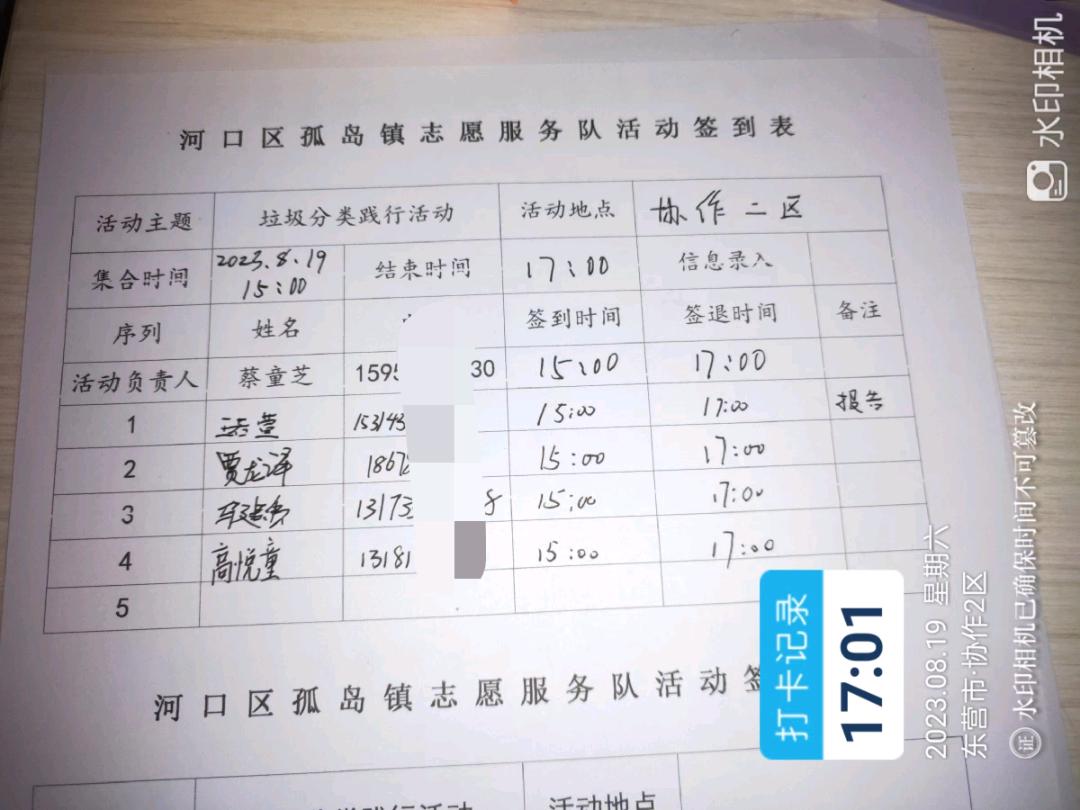 河口区孤岛镇志愿服务队活动签到表
活动主题 垃圾分类践行活动 活动地点 协作二区
集合时间 2023.8.19 15:00 结束时间 17:00 信息录入
序列 姓名 签到时间 签退时间 备注
活动负责人 蔡童芝 159 30 15:00 17:00
1 153143 15:00 17:00 报告
2 贾龙泽 1867 15:00 17:00
3 13173 8 15:00 17:00
4 高悦童 13181 15:00 17:00
5
河口区孤岛镇志愿服务队活动签
践行活动 活动地点
水印相机
打卡记录
17:01
2023.08.19 星期六
东营市·协作2区
证 水印相机已确保时间不可篡改